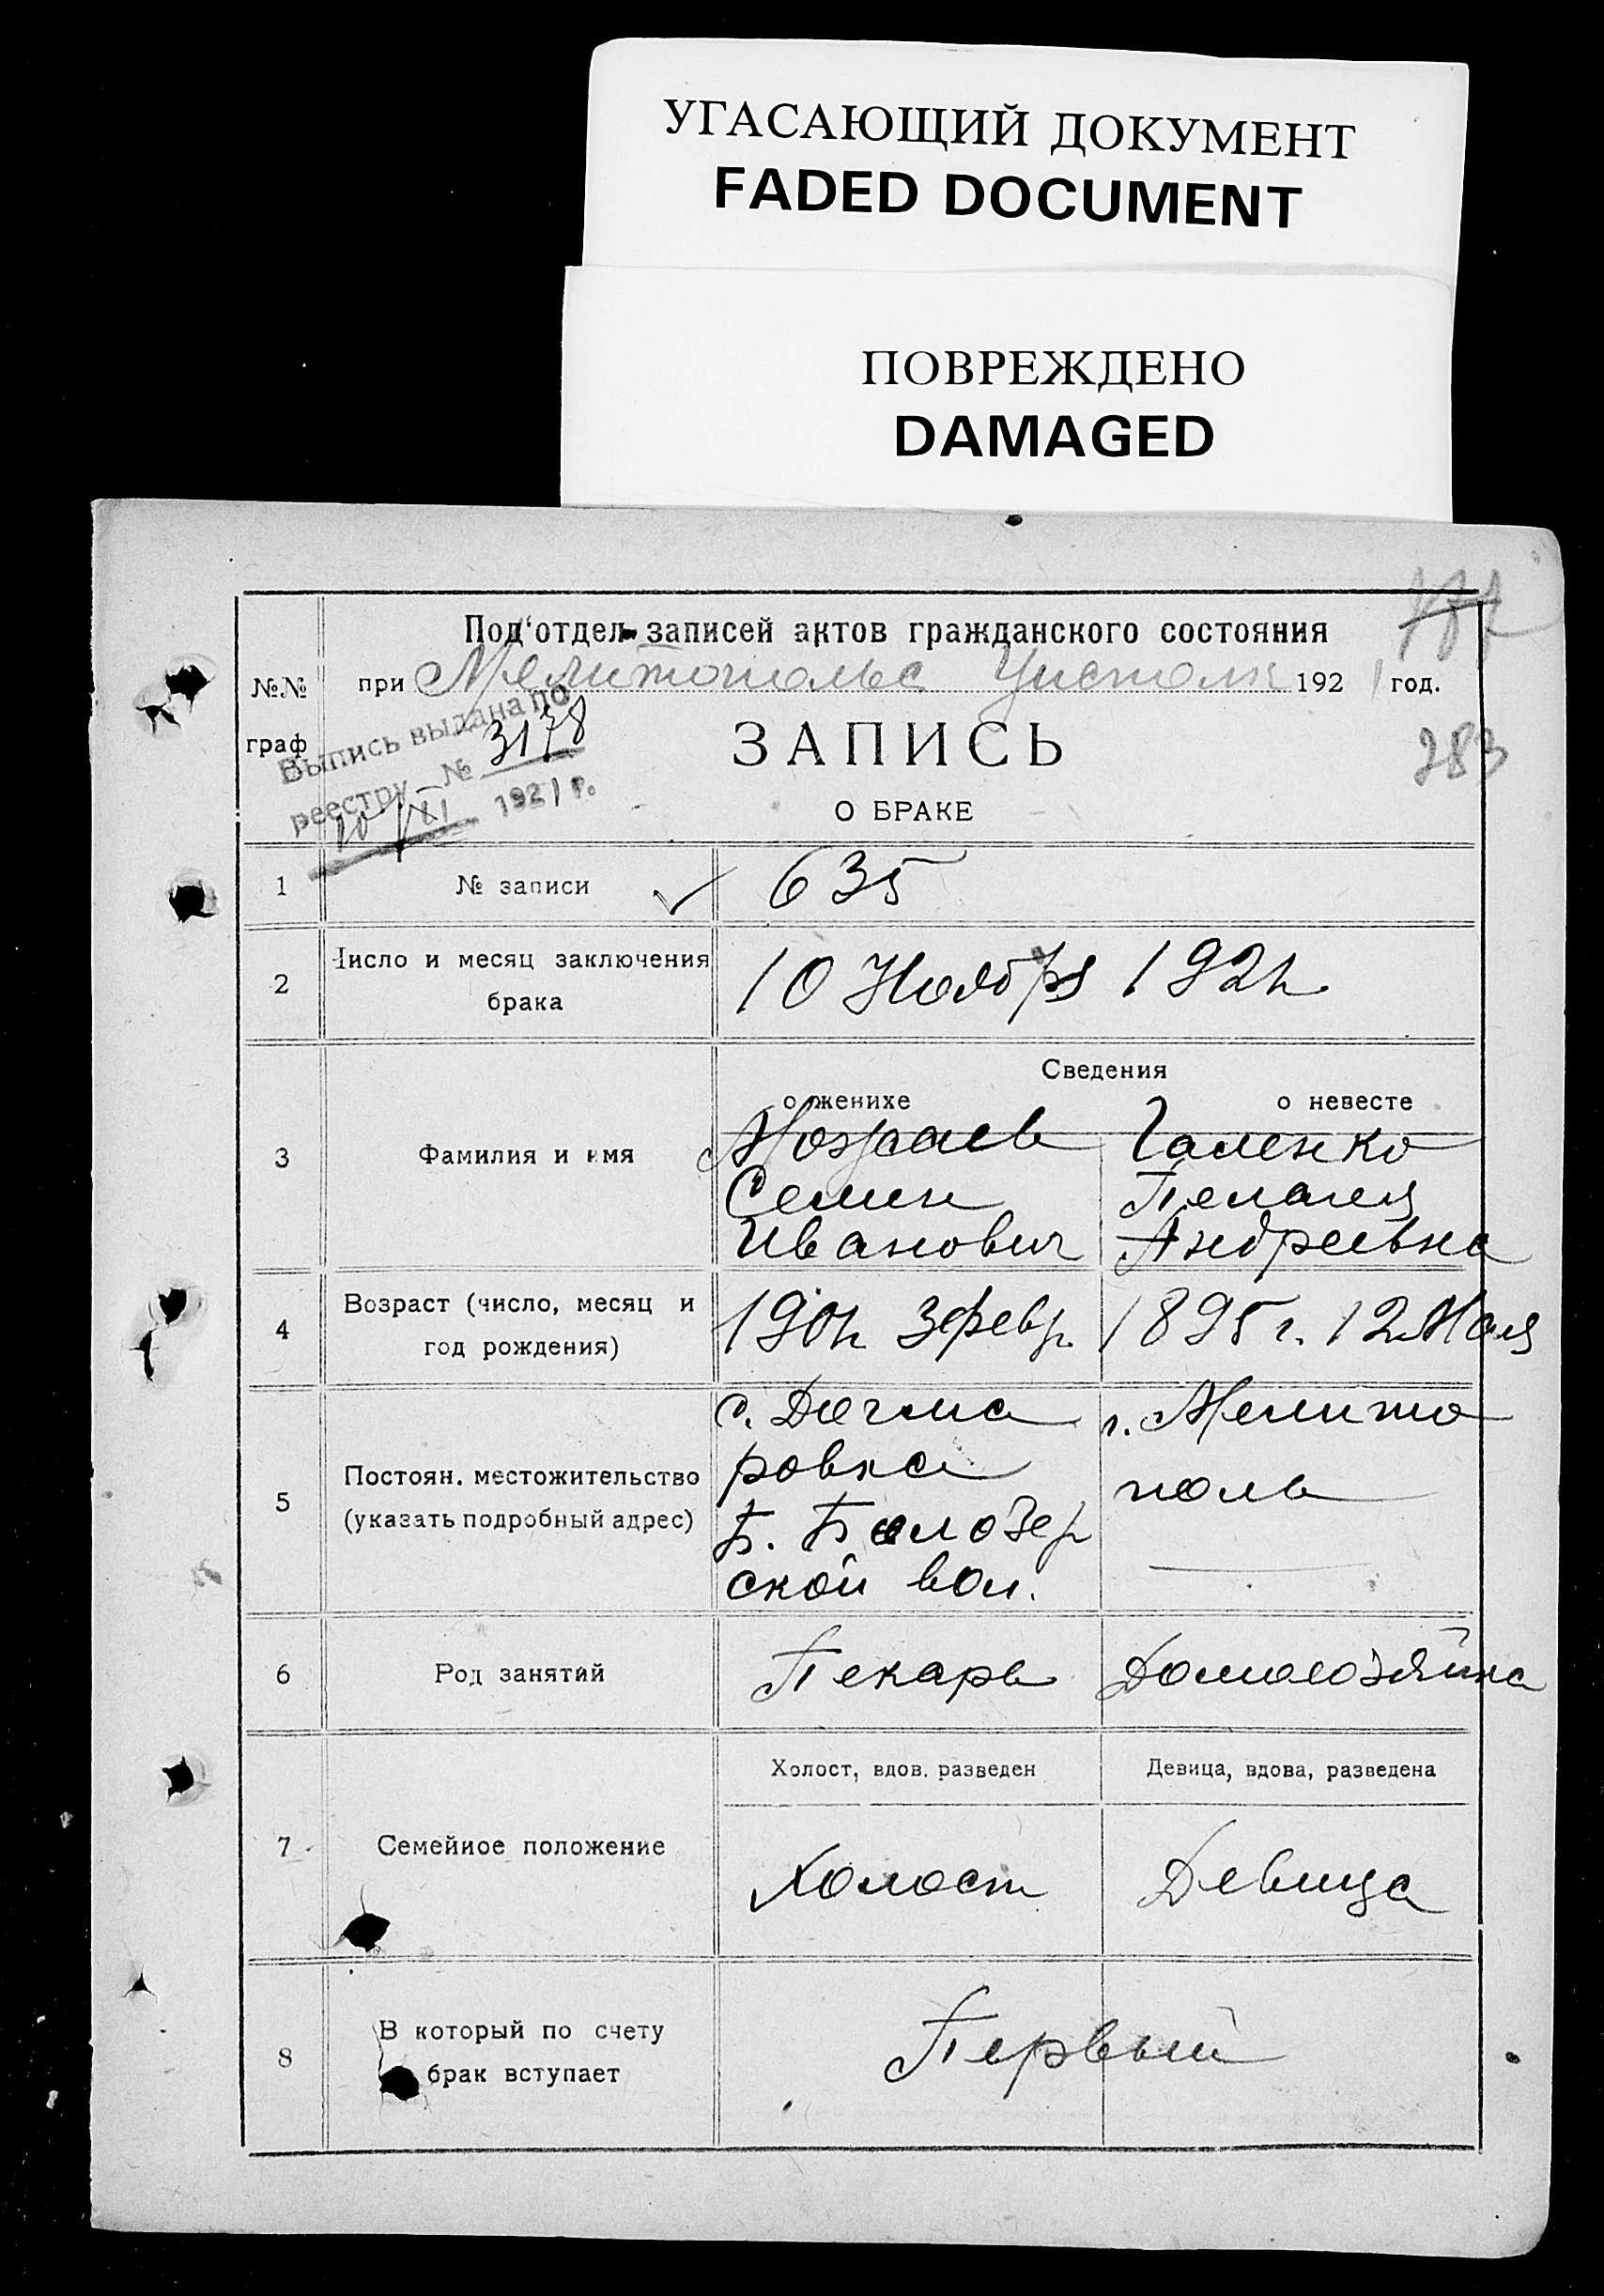 УГАСАЮЩИЙ ДОКУМЕНТ
FADED DOCUMENT
ПОВРЕЖДЕНО
DAMAGED
Под'отдел записей актов гражданского состояния
при Мелитопольс 1921 год.
№№ граф
Выпись выдана по
реестру № 3178
10/XI 1921 г.
ЗАПИСЬ
О БРАКЕ
283
1 № записи 635
2 Число и месяц заключения брака 10 Ноября 1921г.
Сведения
о женихе о невесте
3 Фамилия и имя
Можаев Галенко
Семен Пелагея
Иванович Андреевна
4 Возраст (число, месяц и год рождения) 1901г. 3 февр. 1895 г. 12 Мая
5 Постоян. местожительство (указать подробный адрес)
с. г. Мелито
ровка поль
Б. Белозер
ской вол.
6 Род занятий Пекарь Домохозяйка
7 Семейное положение
Холост, вдов. разведен Девица, вдова, разведена
Холост Девица
8 В который по счету брак вступает Первый